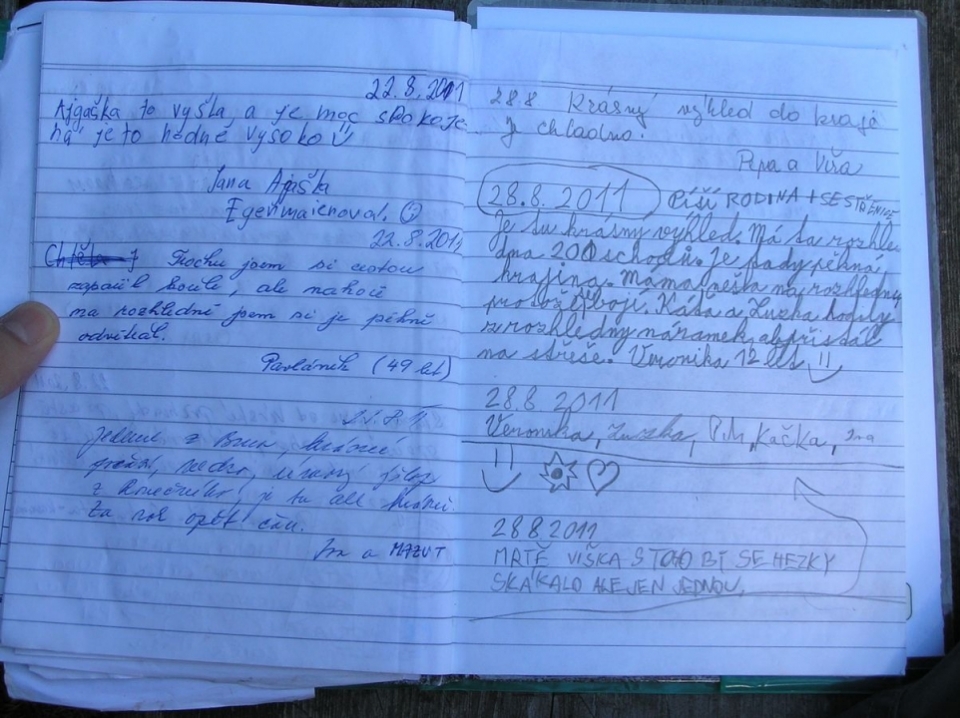 22.8.2011
Ajgaška to vyšla, a je moc spokoje
ná je to hodně vysoko
Jana Ajgaška
Egermaierová.
22.8.2011
Trochu jsem si cestou
zapálil koule, ale nahoře
na rozhledně jsem si je pěkně
odvětral.
Pavlánek (49 let)
22.8.11
Jedeme z Brna, krásné
počasí,
z je tu ale krásně
Za rok opět čau.
a MAZUT
28.8 Krásný výhled do kraje
Je chladno.
Pepa a Víra
28.8.2011 Píší RODINA + SESTŘENICE
Je tu krásný výhled. Má ta rozhle
dna 200 schodů. Je tady pěkná
krajina. Máma nešla na rozhlednu
protože se bojí. Káťa a Zuzka hodily
z rozhledny náramek, ab přistál
na střeše. Veronika 12 let
28.8 2011
Veronika, Zuzka, Kačka,
28 8 2011
MRTĚ VIŠKA S TOHO BT SE HEZKY
SKÁKALO ALE JEN JEDNOU